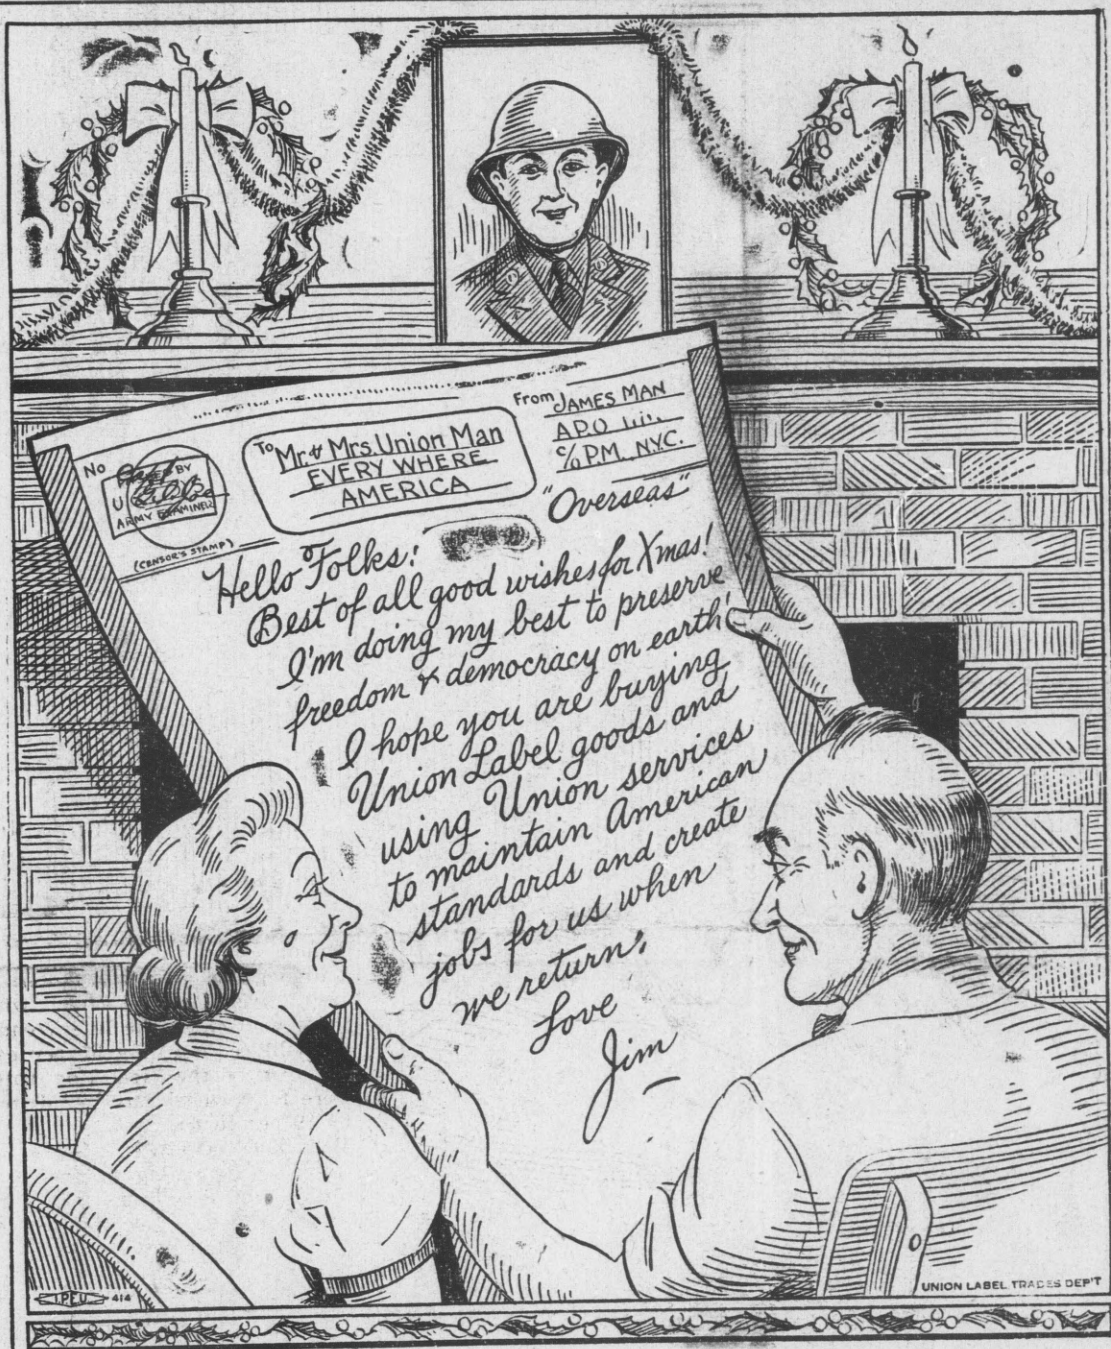 No
BY
U
ARMY EXAMINER
(CENSOR'S STAMP)
To Mr. & Mrs. Union Man
EVERY WHERE
AMERICA
From JAMES MAN
A.P.O.
c/o P.M. N.Y.C.
"Overseas"
Hello Folks:
Best of all good wishes for Xmas!
I'm doing my best to preserve
freedom & democracy on earth!
I hope you are buying
Union Label goods and
using Union services
to maintain American
standards and create
jobs for us when
we return.
Love
Jim
I.P.E.U. 414
UNION LABEL TRADES DEP'T